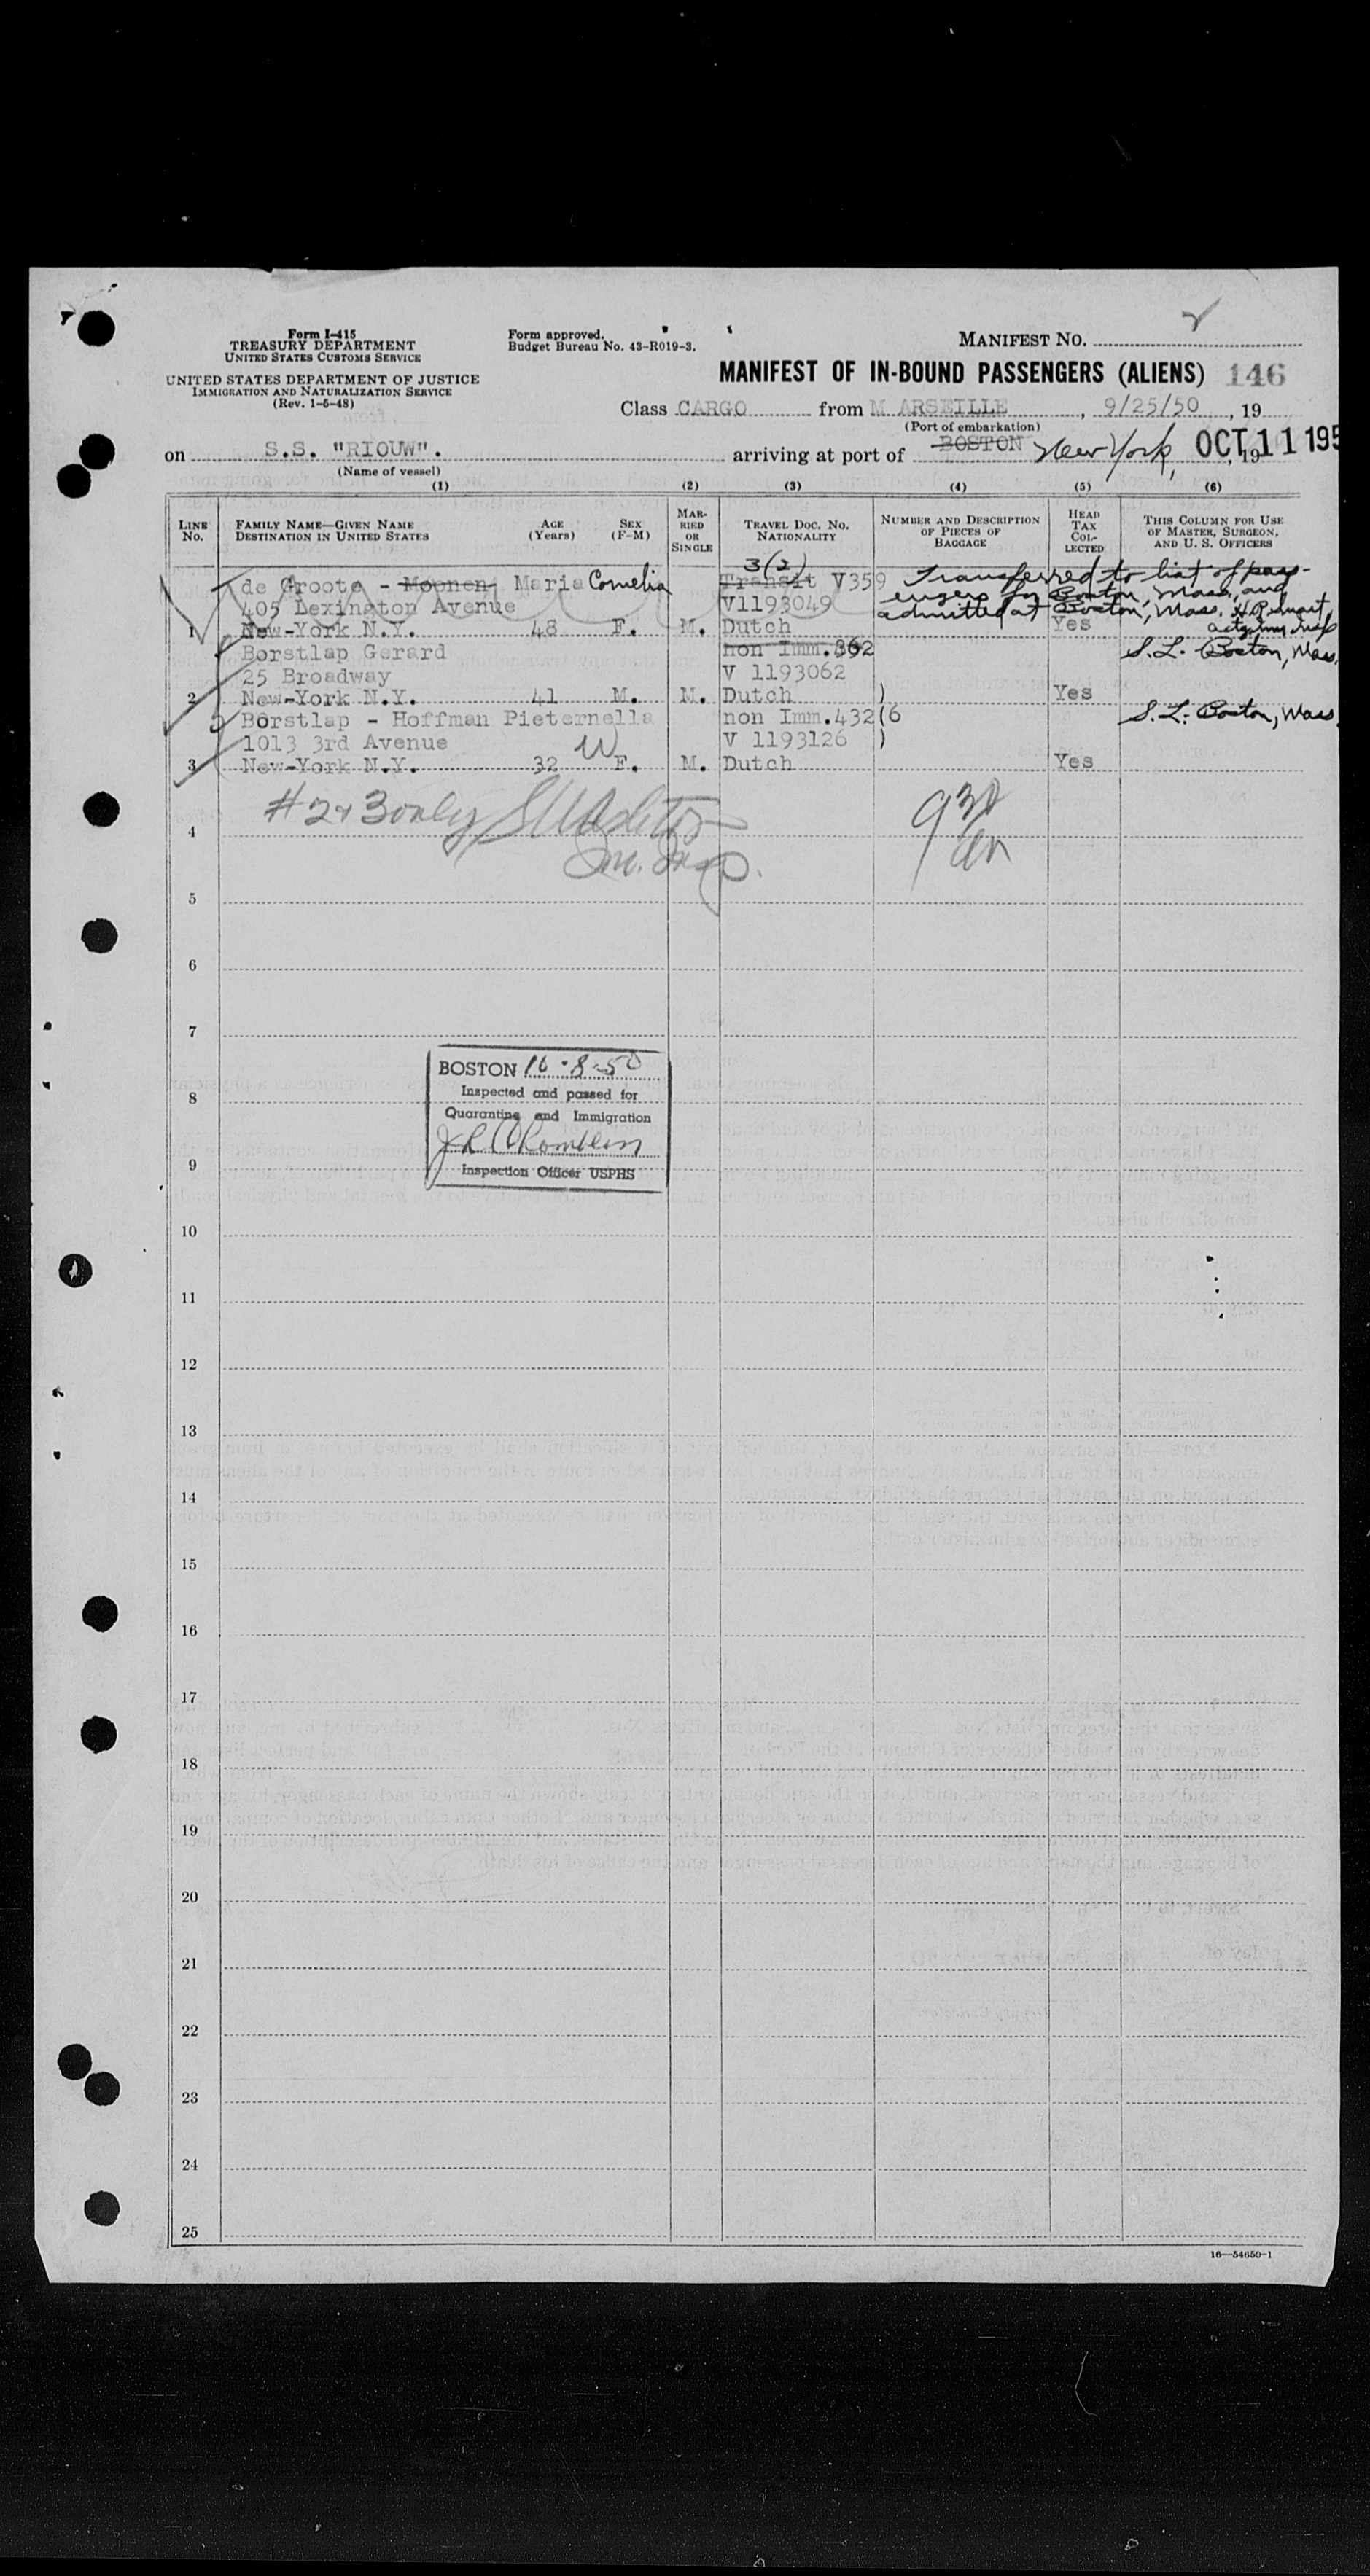 Form I-415
TREASURY DEPARTMENT
UNITED STATES CUSTOMS SERVICE
UNITED STATES DEPARTMENT OF JUSTICE
IMMIGRATION AND NATURALIZATION SERVICE
(Rev. 1-5-48)
Form approved.
Budget Bureau No. 43-R019-3.
MANIFEST NO.
MANIFEST OF IN-BOUND PASSENGERS (ALIENS) 146
Class CARGO from MARSEILLE, 9/25/50, 19
(Port of embarkation)
on S.S. "RIOUW". arriving at port of BOSTON New York, OCT 11 195, 19
(Name of vessel)
(1) (2) (3) (4) (5) (6)
LINE No. FAMILY NAME—GIVEN NAME DESTINATION IN UNITED STATES AGE (Years) SEX (F-M) MARRIED OR SINGLE TRAVEL DOC. NO. NATIONALITY NUMBER AND DESCRIPTION OF PIECES OF BAGGAGE HEAD TAX COLLECTED THIS COLUMN FOR USE OF MASTER, SURGEON, AND U. S. OFFICERS
3(2)
de Groote - Moonen Maria Cornelia Transit V359 Transferred to list of pass-
405 Lexington Avenue V1193049 engers for Boston, Mass, and
admitted at Boston, Mass.
1 New-York N.Y. 48 F. M. Dutch Yes
Borstlap Gerard non Imm.362 S.L. Boston, Mass.
25 Broadway V 1193062
2 New-York N.Y. 41 M. M. Dutch ) Yes
Borstlap - Hoffman Pieternella non Imm.432 (6 S.L. Boston, Mass.
1013 3rd Avenue W V 1193126 )
3 New-York N.Y. 32 F. M. Dutch Yes
#2+3 only
4
5
6
7
BOSTON 10-8-50
Inspected and passed for
8
Quarantine and Immigration
9
Inspection Officer USPHS
10
11
12
13
14
15
16
17
18
19
20
21
22
23
24
25
16—54650-1